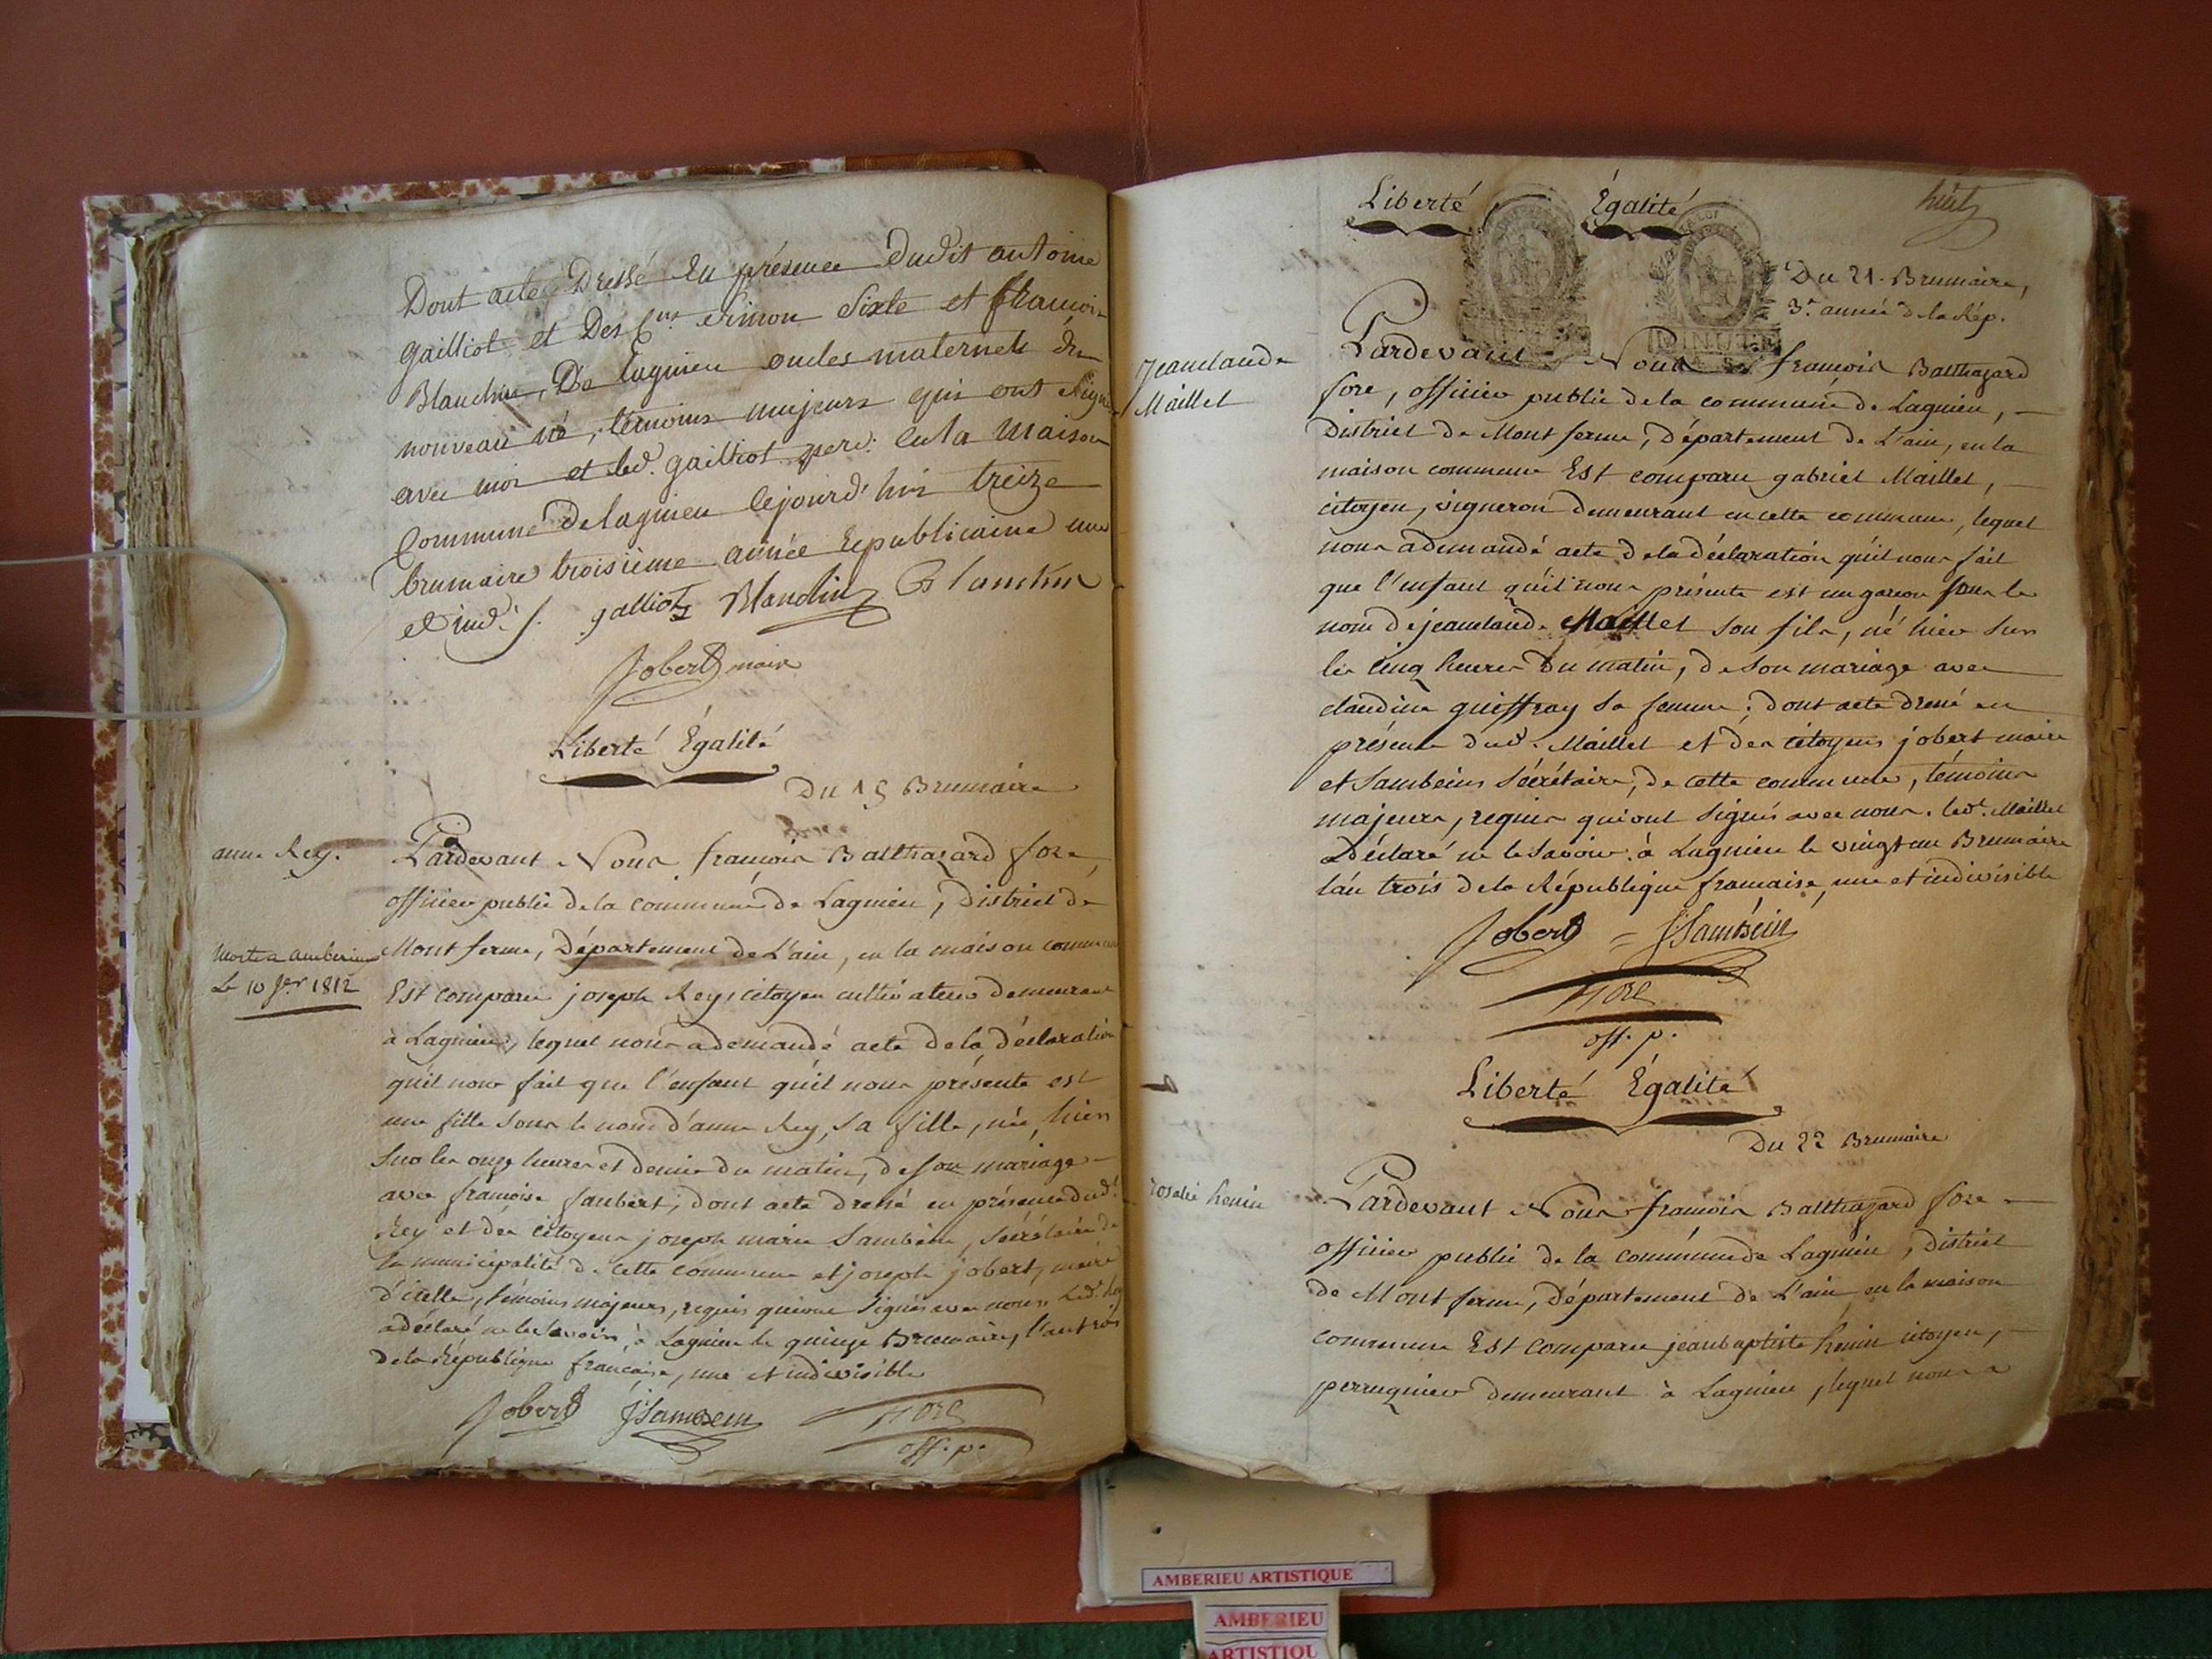 Dont acte Dressé En présence Dudit antoine
gailliot et Des Cns Simon Sixte et françois
Blanchin, De lagnieu oncles maternels du
nouveau né, témoins majeurs qui ont signé
avec moi et led. gailliot pere. en la maison
Commune de lagnieu cejourd'hui treize
brumaire troisième année Republicaine une
et ind. /. galliot Blanchin Blanchin
Jobert maire
Liberté Égalité
Du 15 Brumaire
anne Rey.
Pardevant Nous françois Balthazard fore,
officier public de la commune de Lagnieu, District de
Mont ferme, Département de L'ain, en la maison commune
morte a amberieu
Le 10 Jer 1812
Est comparu joseph Rey, citoyen cultivateur demeurant
à Lagnieu, lequel nous a demandé acte de la déclaration
qu'il nous fait que l'enfant qu'il nous présente est
une fille sous le nom d'anne Rey, sa fille, née hier
sur les onze heures et demie du matin, de son mariage
avec françoise faubert; dont acte dressé en présence dud.
Rey et des citoyens joseph marie Sambein, sécrétaire de
la municipalité de cette commune et joseph jobert, maire
d'icelle, témoins majeurs, requis qui ont signés avec nous. Led. Rey
a déclaré ne le savoir, à Lagnieu le quinze Brumaire, l'an trois
de la République française, une et indivisible
Jobert JSambein fore
off. p.
Liberté Égalité
huit
Du 21. Brumaire,
3e. année de la Rép.
MINUTE
Jeanclaude
Maillet
Pardevant Nous françois Balthazard
fore, officier public de la commune de Lagnieu,
District de Mont ferme, Département de L'ain, en la
maison commune Est comparu gabriel Maillet,
citoyen, vigneron demeurant en cette commune, lequel
nous a demandé acte de la déclaration qu'il nous fait
que l'enfant qu'il nous présente est un garcon sous le
nom de jeanclaude Maillet son fils, né hier sur
les cinq heures du matin, de son mariage avec
claudine guiffray sa femme; dont acte dressé en
présence dud. Maillet et des citoyens jobert maire
et Sambein sécrétaire, de cette commune, témoins
majeurs, requis qui ont signés avec nous. led. Maillet
a déclaré ne le savoir. à Lagnieu le vingt un Brumaire
l'an trois de la République française, une et indivisible
Jobert = JSambein
fore
off. p.
Liberté Égalité
Du 22 Brumaire
rosalie henin
Pardevant Nous françois Balthazard fore
officier public de la commune de Lagnieu, District
de Mont ferme, Département de L'ain en la maison
commune Est comparu jeanbaptiste henin citoyen,
perruquier demeurant à Lagnieu, lequel nous a
AMBERIEU ARTISTIQUE
AMBERIEU
ARTISTIQU